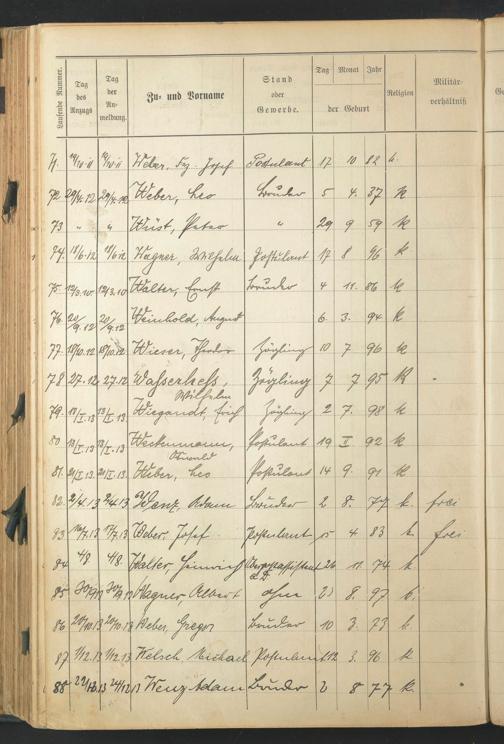 Laufende Nummer. Tag des Anzugs Tag der An-meldung. Zu- und Vorname Stand oder Gewerbe. Tag Monat Jahr der Geburt Religion Militär-verhältniß
71. Weber, Josef Postulant 17 10 82 k.
72. 29/4.12 29/4.12 Weber, Leo Bruder 5 4. 37 k
73 " " Wüst, Peter " 29 9 59 k
74. 18/6.12 18/6.12 Wagner, Wilhelm Postulant 17 8 96 k
75. 12/3.10. 12/3.10 Walter, Ernst Bruder 4 11. 86 k
76. 20/9.12 20/9.12 Weinhold, August 6 3. 94 k
77. 18/10.12 18/10.12 Wieser, Theodor Zögling 10 7 96 k
78 27.12 27.12 Wasserhess, Wilhelm Zögling 7 7 95 k
79. 13/I.13 13/I.13 Wiegandt, Erich Zögling 2 7. 98 k
80 13/I.13 13/I.13 Oswald Postulant 19 I 92 k
81. 21/I.13 21/I.13 Huber, Leo Postulant 14 9. 91 k
82. 2/4.13 2/4.13 Wenz, Adam Bruder 2 8. 77 k. frei
83. 17/7.13 Weber, Josef Postulant 5 4 83 k. frei
84 4/8. 4/8. Walter, Heinrich a. D. 26 11. 74 k
85. 30/9 13 30/9 13 Wagner, Albert ohne 21 8. 97 k.
86 20/10.13 20/10.13 Weber, Gregor Bruder 10 3. 73 k.
87. 1/12.13 1/12.13 Welsch Michael Postulant 12 3. 96 k
88 24/12.13 24/12.13 Wenz Adam Bruder 2 8 77 k.